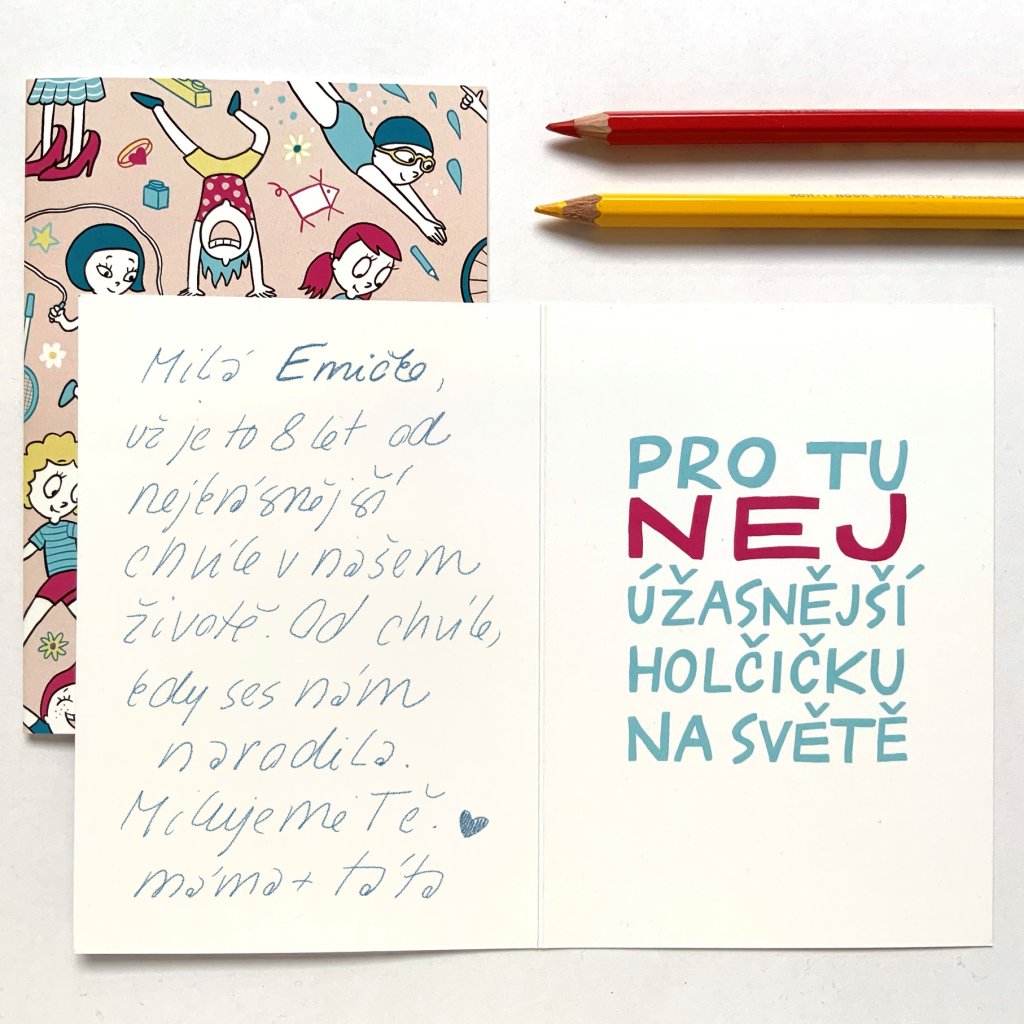 Milá Emičko,
už je to 8 let od
nejkrásnější
chvíle v našem
životě. Od chvíle,
kdy ses nám
narodila.
Milujeme Tě.
máma + táta
PRO TU
NEJ
ÚŽASNĚJŠÍ
HOLČIČKU
NA SVĚTĚ